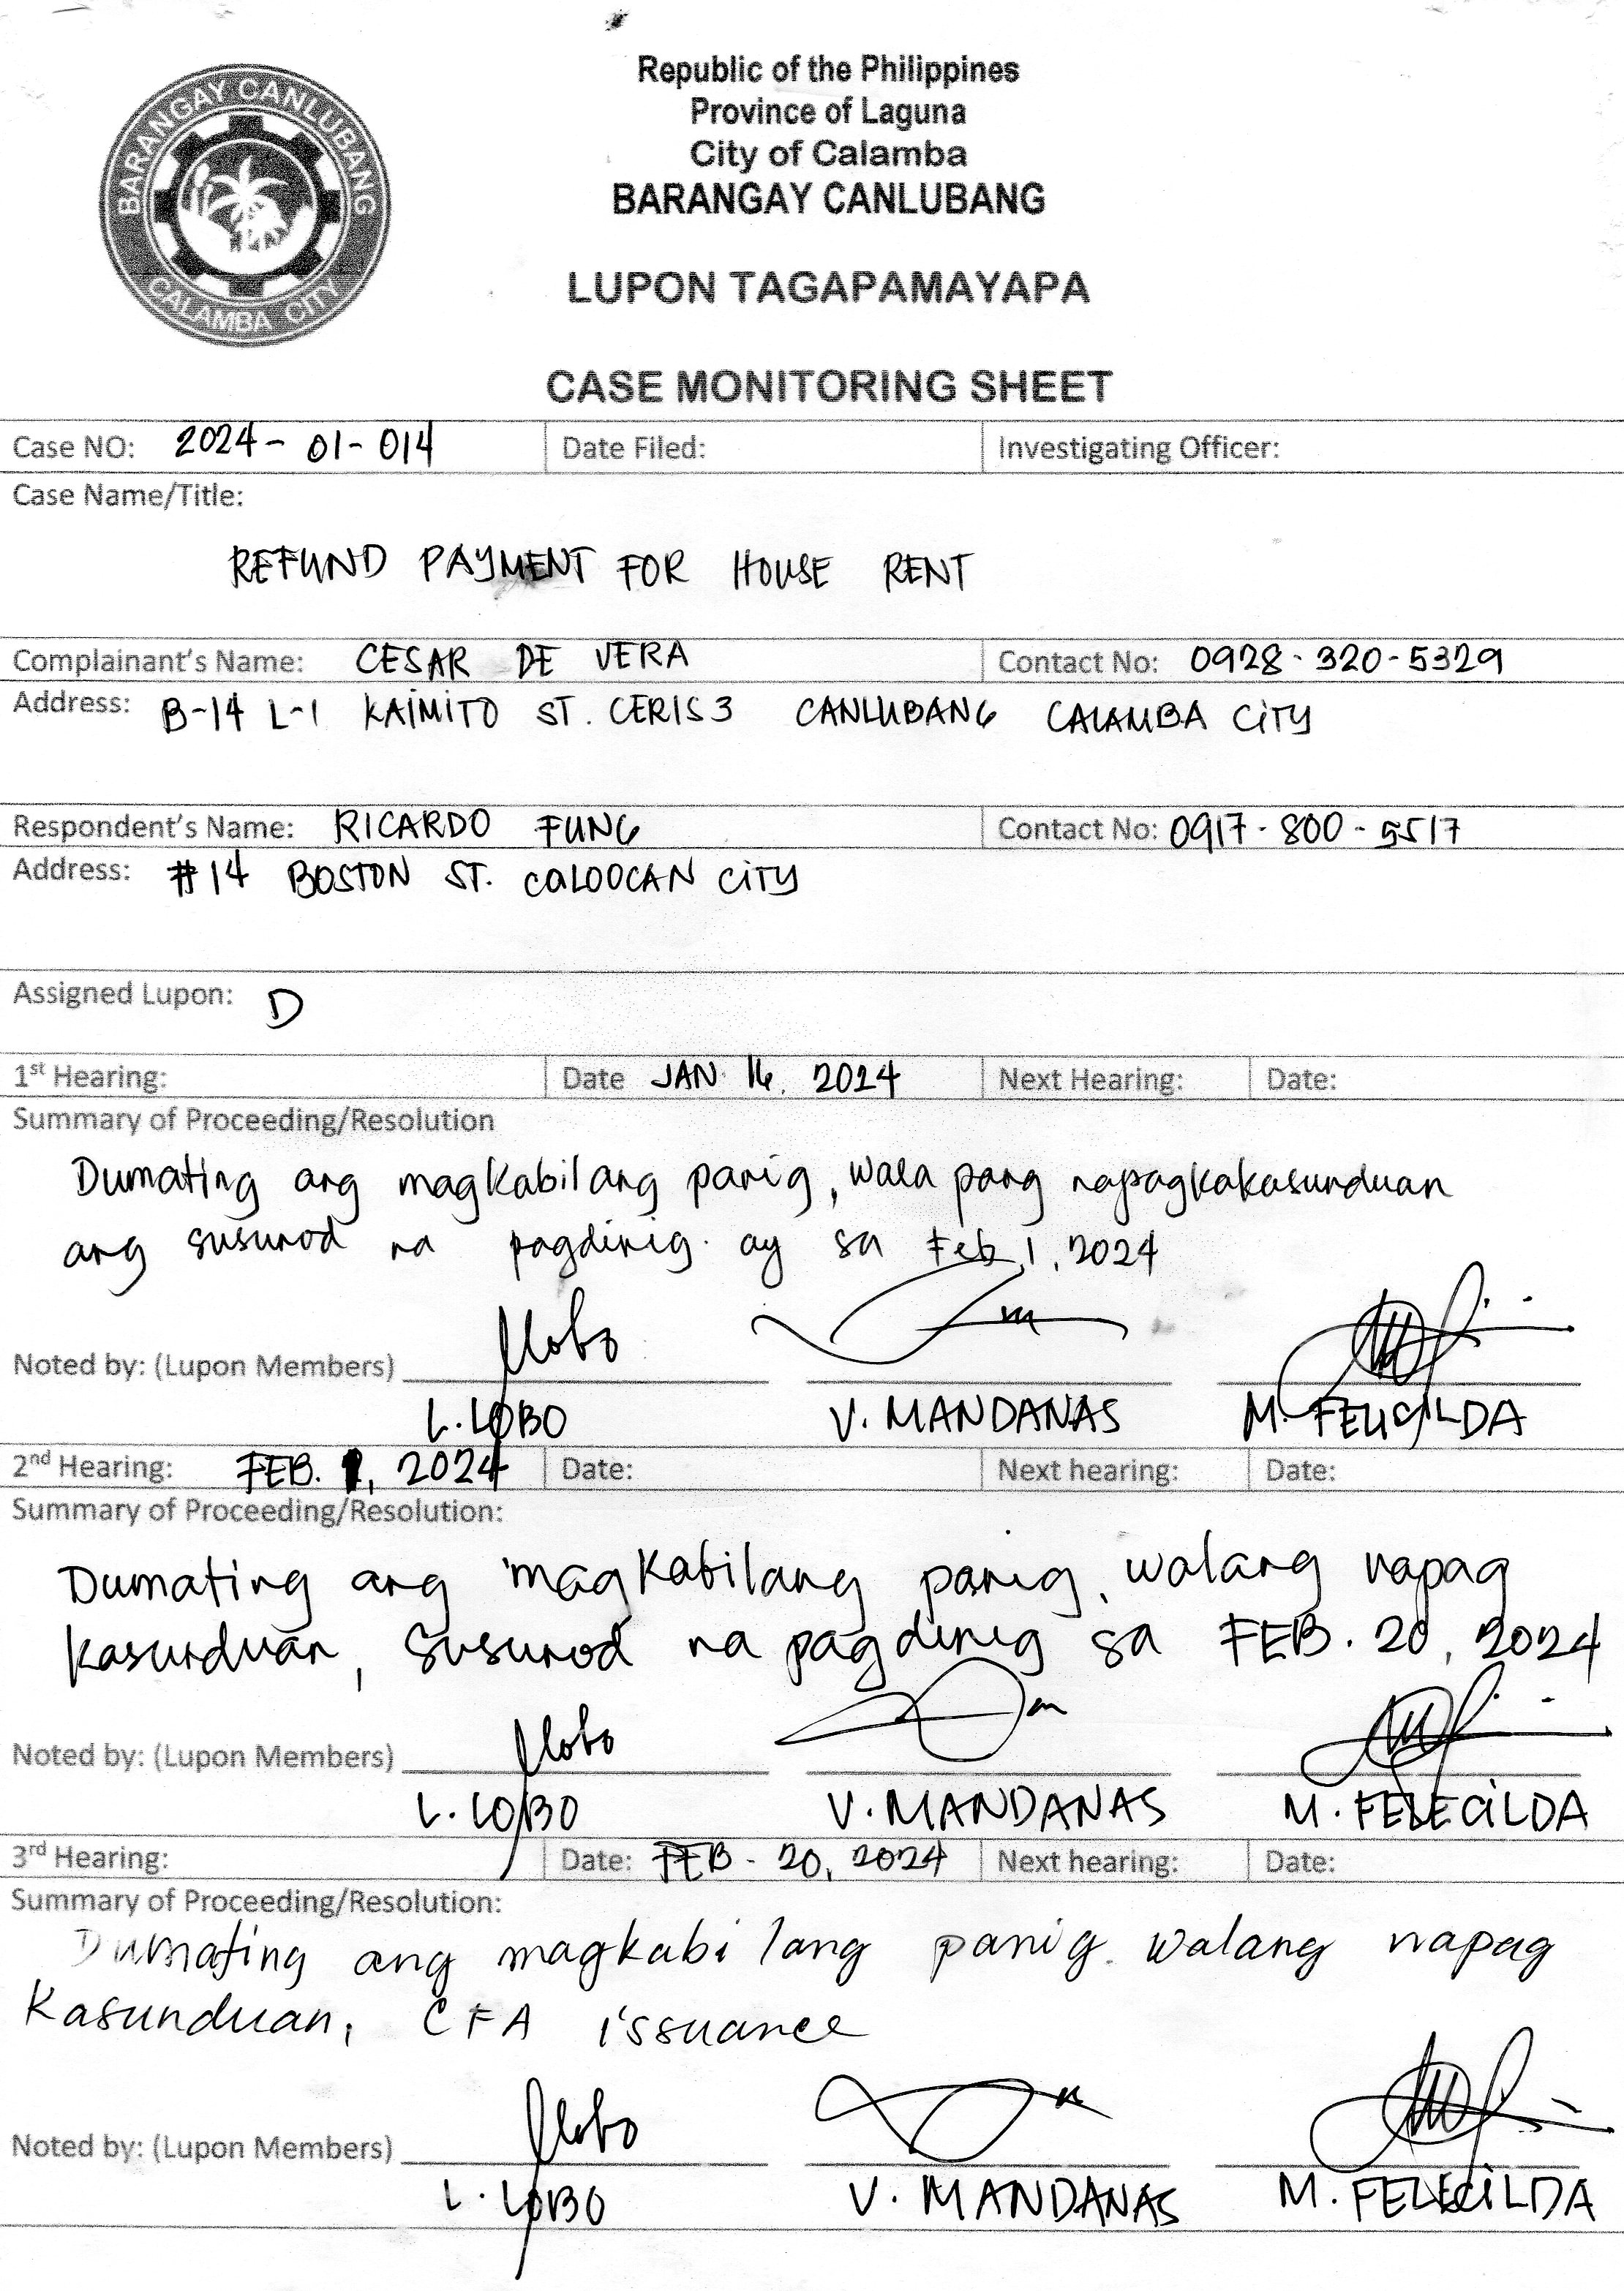 BARANGAY CANLUBANG
CALAMBA CITY
Republic of the Philippines
Province of Laguna
City of Calamba
BARANGAY CANLUBANG
LUPON TAGAPAMAYAPA
CASE MONITORING SHEET
Case NO: 2024-01-014 Date Filed: Investigating Officer:
Case Name/Title:
REFUND PAYMENT FOR HOUSE RENT
Complainant's Name: CESAR DE VERA Contact No: 0928-320-5329
Address: B-14 L-1 KAIMITO ST. CERIS 3 CANLUBANG CALAMBA CITY
Respondent's Name: RICARDO FUNG Contact No: 0917-800-5517
Address: #14 BOSTON ST. CALOOCAN CITY
Assigned Lupon: D
1st Hearing: Date JAN 16, 2024 Next Hearing: Date:
Summary of Proceeding/Resolution
Dumating ang magkabilang panig, wala pang napagkakasunduan
ang susunod na pagdinig ay sa Feb 1, 2024
Noted by: (Lupon Members)
L. LOBO V. MANDANAS M. FELICILDA
2nd Hearing: FEB. 1, 2024 Date: Next hearing: Date:
Summary of Proceeding/Resolution:
Dumating ang magkabilang panig, walang napag
kasunduan, Susunod na pagdinig sa FEB. 20, 2024
Noted by: (Lupon Members)
L. LOBO V. MANDANAS M. FELECILDA
3rd Hearing: Date: FEB - 20, 2024 Next hearing: Date:
Summary of Proceeding/Resolution:
Dumating ang magkabilang panig. walang napag
Kasunduan, CFA issuance
Noted by: (Lupon Members)
L. LOBO V. MANDANAS M. FELECILDA